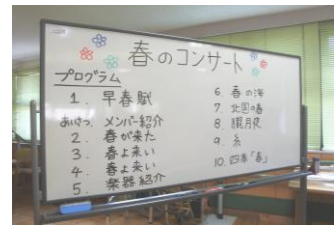 春のコンサート
プログラム
1. 早春賦
あいさつ メンバー紹介
2. 春が来た
3. 春よ来い
4. 春よ来い
5. 楽器紹介
6 春の海
7. 北国の春
8. 朧月夜
9. 糸
10. 四季「春」